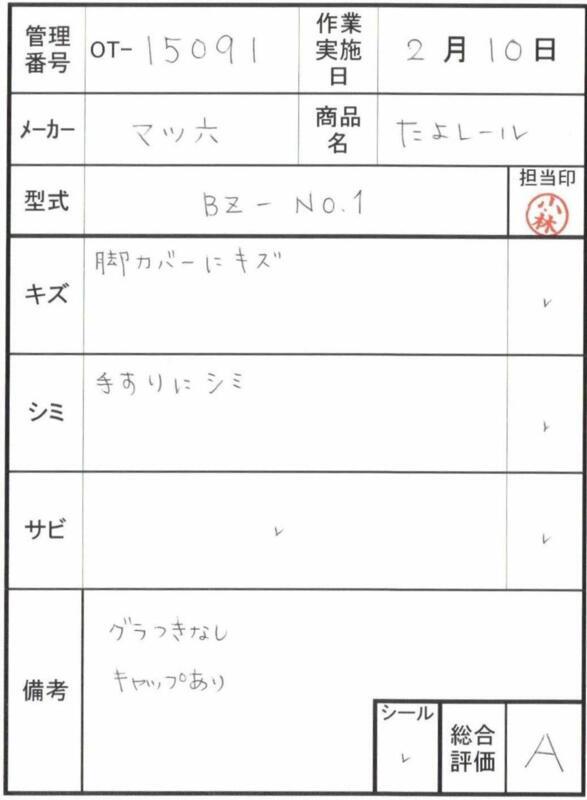 管理番号 OT-15091 作業実施日 2月10日
メーカー マツ六 商品名 たよレール
型式 BZ-No.1 担当印 小林
キズ 脚カバーにキズ ✓
シミ 手すりにシミ ✓
サビ ✓ ✓
備考 グラつきなし
キャップあり
シール ✓ 総合評価 A